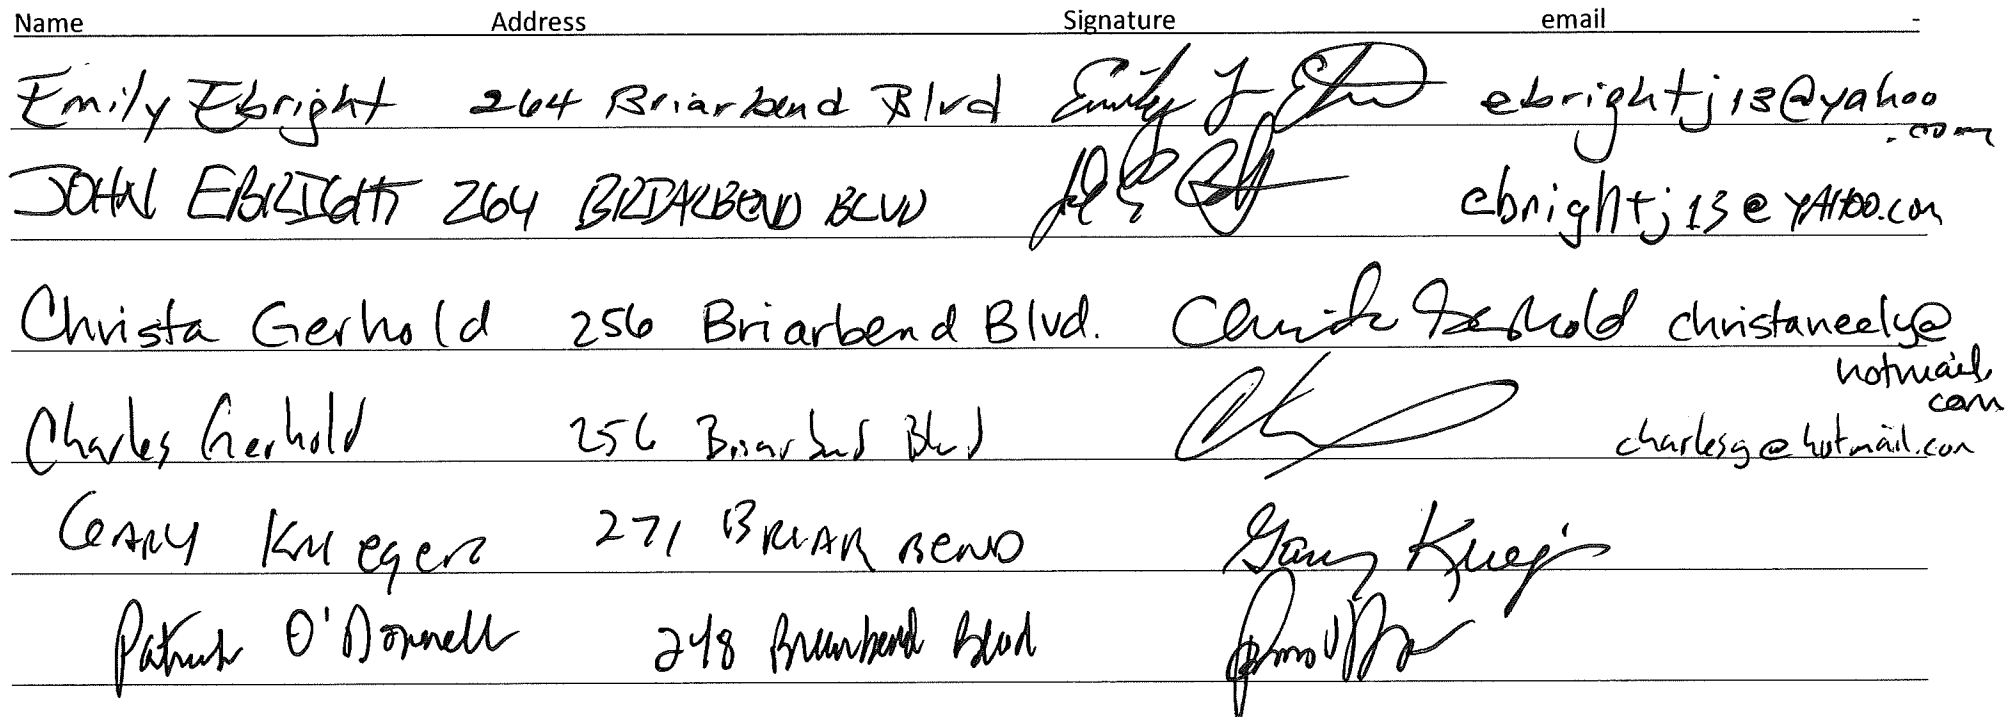 Name Address Signature email -
Emily Ebright 264 Briarbend Blvd Emily J ebrightj13@yahoo
.com
JOHN EBRIGHT 264 BRIARBEND BLVD ebrightj13@YAHOO.com
Christa Gerhold 256 Briarbend Blvd. Christa Gerhold christaneely@
hotmail.
com
Charles Gerhold 256 Briarbend Blvd charlesg@hotmail.com
GARY KRUEGER 271 BRIAR BEND Gary Krueger
Patrick O'Donnell 248 Briarbend Blvd